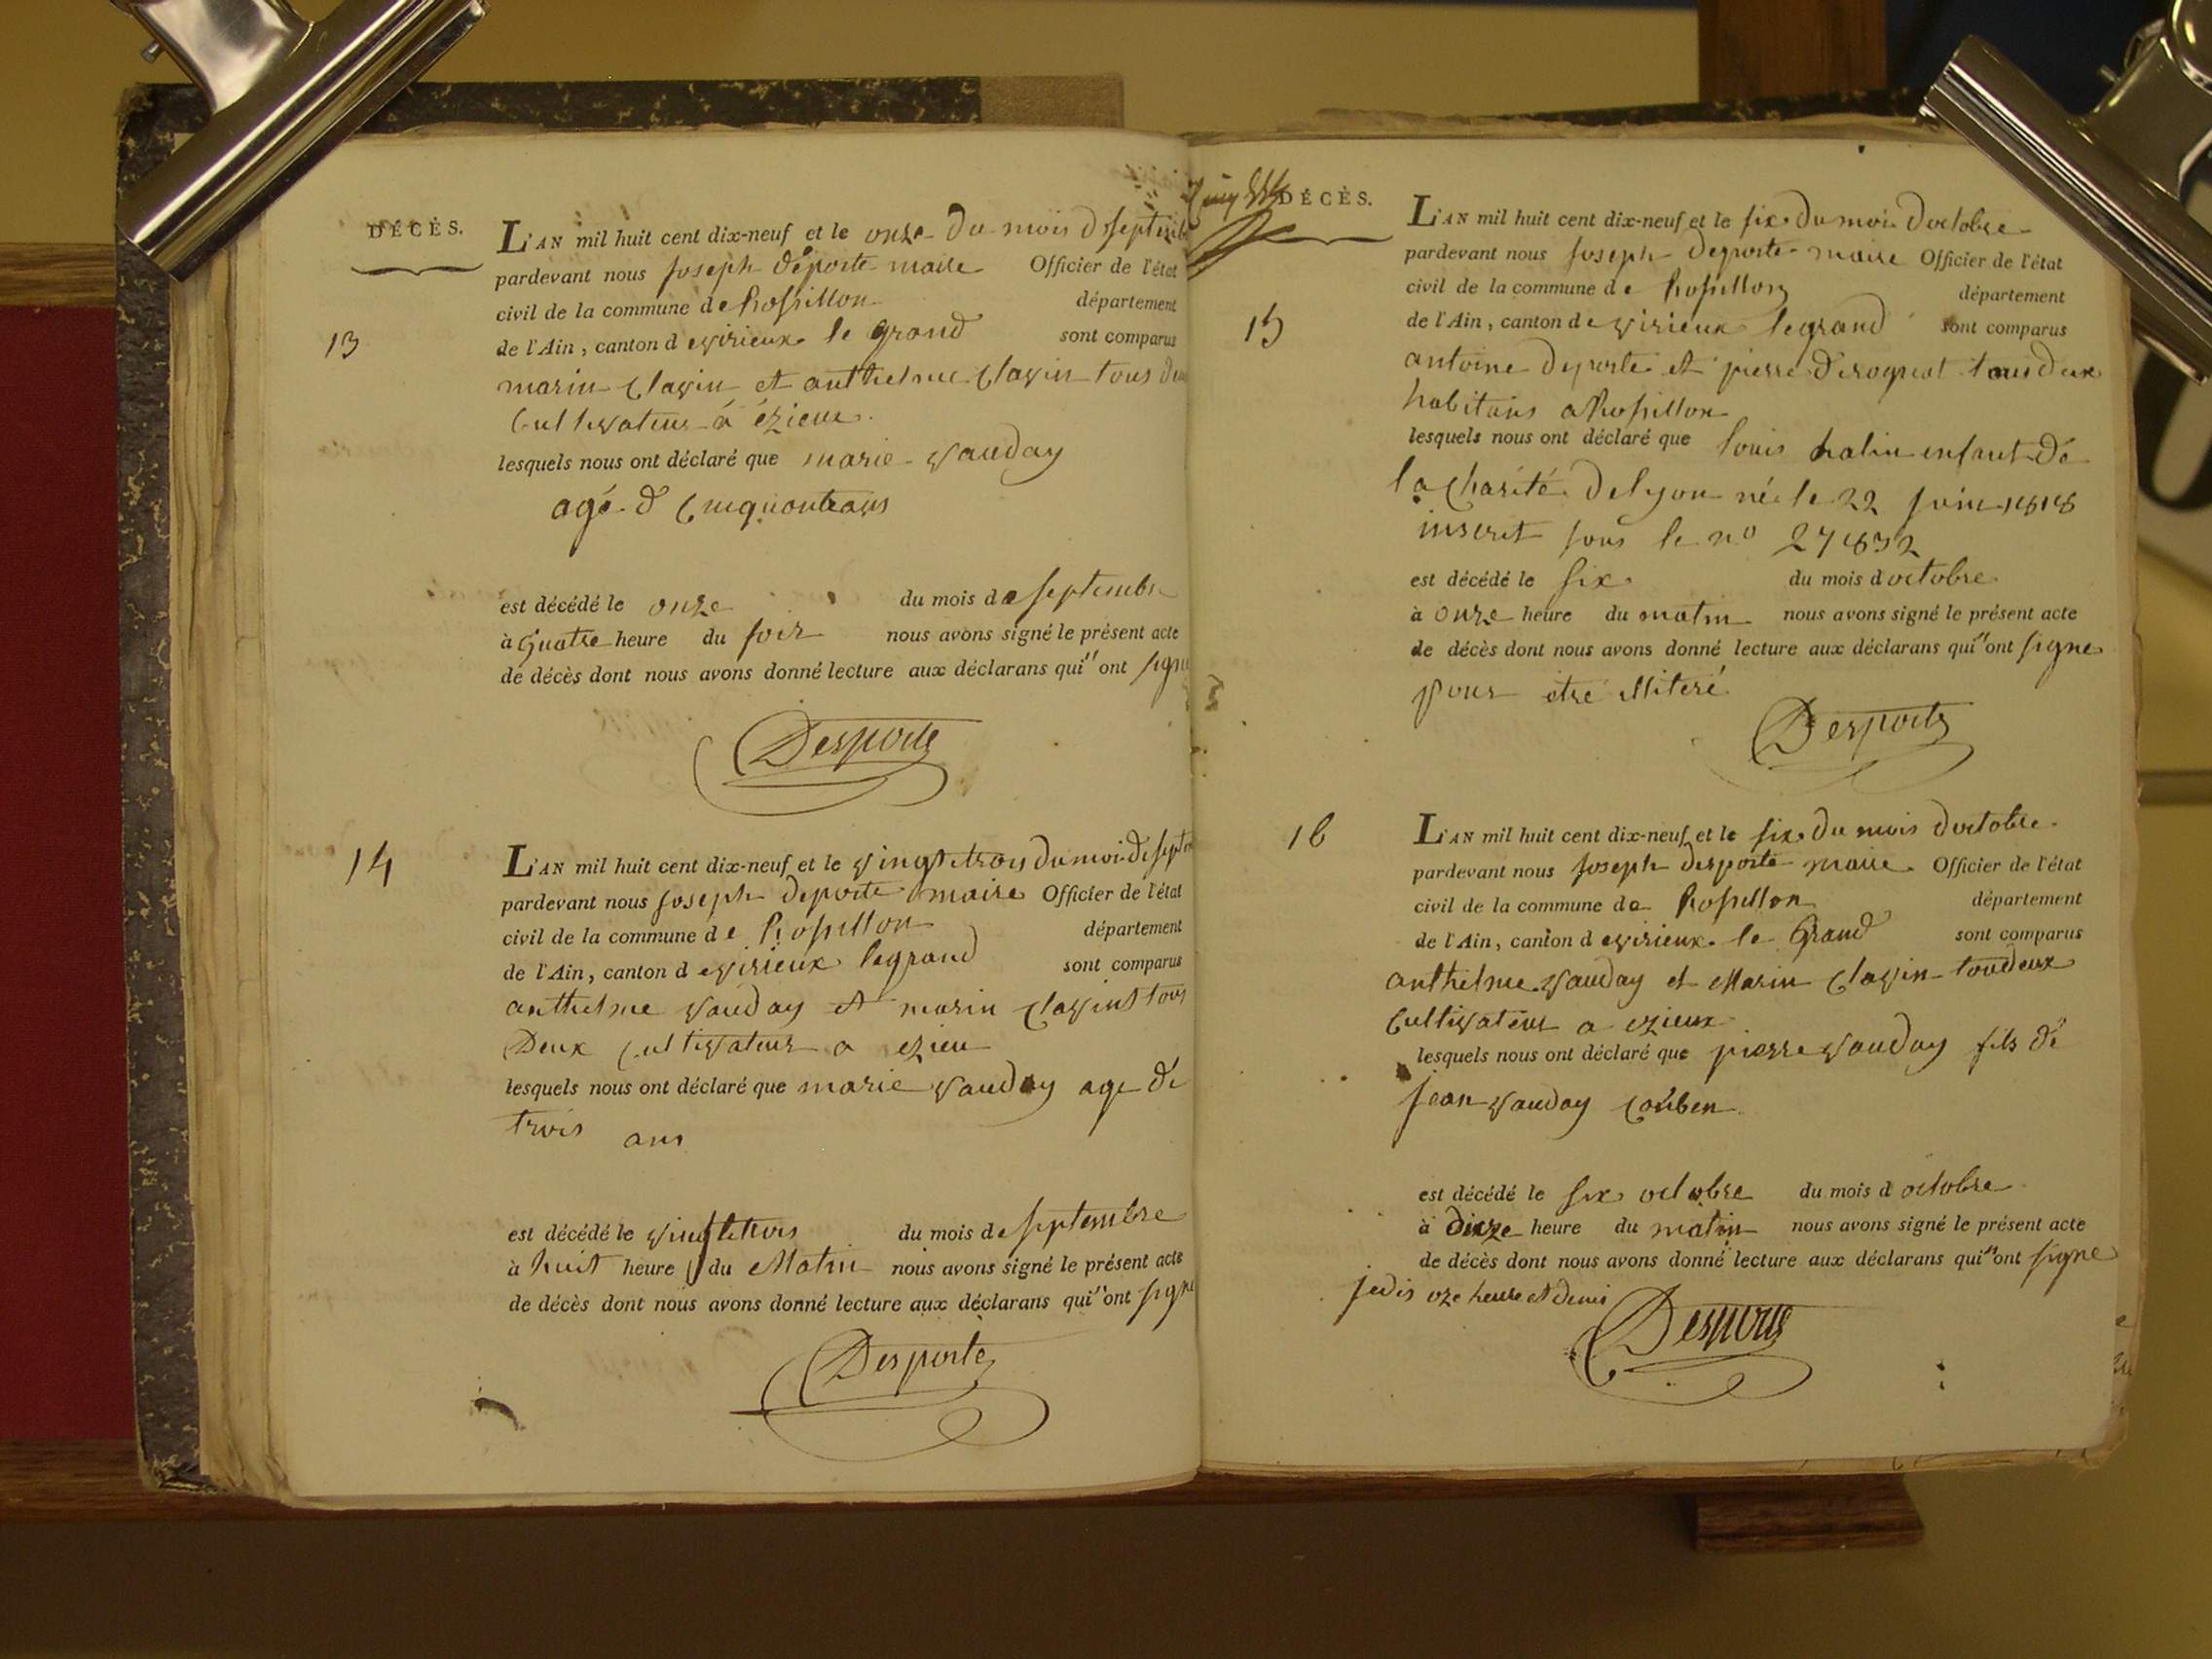 DÉCÈS.
L'AN mil huit cent dix-neuf et le onze du mois d septemb
pardevant nous joseph deporte maire Officier de l'état
civil de la commune de Rossillon département
13
de l'Ain, canton d evirieux le grand sont comparus
marin clavin et anthelme clavin tous deu
Cultivateur à ézieux.
lesquels nous ont déclaré que marie vauday
agé d Cinquonteans
est décédé le onze du mois de septembre
à quatre heure du soir nous avons signé le présent acte
de décès dont nous avons donné lecture aux déclarans qui" ont signe
Desporte
14
L'AN mil huit cent dix-neuf et le vingtetrois du moi de septe
pardevant nous joseph deporte maire Officier de l'état
civil de la commune de Rossillon département
de l'Ain, canton d evirieux legrand sont comparus
anthelme vauday et marin clavint tous
Deux cultivateur a ezieu
lesquels nous ont déclaré que marie vauday age de
trois ans
est décédé le vingtetrois du mois de septembre
à huit heure du Matin nous avons signé le présent acte
de décès dont nous avons donné lecture aux déclarans qui" ont signe
Desporte
DÉCÈS.
L'AN mil huit cent dix-neuf et le six du moi Doctobre
pardevant nous joseph deporte maire Officier de l'état
civil de la commune de Rossillon département
15
de l'Ain, canton de virieux legrand sont comparus
antoine deporte et pierre tous deux
habitans a Rossillon
lesquels nous ont déclaré que louis enfant de
la charité de lyon né le 22 juin 1818
inscrit sous le no 27832
est décédé le six du mois d octobre
à onze heure du matin nous avons signé le présent acte
de décès dont nous avons donné lecture aux déclarans qui" ont signe
pour etre illiteré
Desporte
16
L'AN mil huit cent dix-neuf et le six du mois doctobre
pardevant nous joseph desporte maire Officier de l'état
civil de la commune de Rossillon département
de l'Ain, canton d evirieux le Grand sont comparus
anthelme vauday et Marin clavin toudeux
Cultivateur a ezieux
lesquels nous ont déclaré que pierre vauday fils de
jean vauday
est décédé le six octobre du mois d octobre
à heure du matin nous avons signé le présent acte
de décès dont nous avons donné lecture aux déclarans qui" ont signe
jedis oze heure et demis
Desporte